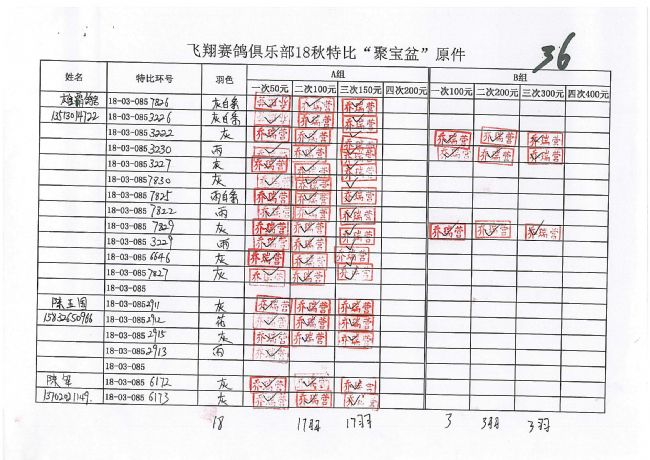 飞翔赛鸽俱乐部18秋特比“聚宝盆”原件
36
姓名 特比环号 羽色 A组 B组
一次50元 二次100元 三次150元 四次200元 一次100元 二次200元 三次300元 四次400元
雄霸鸽舍 18-03-085 7826 灰白条 乔瑞营 乔瑞营 乔瑞营
13513014722 18-03-085 3226 灰白条 乔瑞营 乔瑞营 乔瑞营
18-03-085 3222 灰 乔瑞营 乔瑞营 乔瑞营 乔瑞营 乔瑞营 乔瑞营
18-03-085 3230 雨 乔瑞营 乔瑞营 乔瑞营 乔瑞营 乔瑞营 乔瑞营
18-03-085 3227 灰 乔瑞营 乔瑞营 乔瑞营
18-03-085 7830 灰 乔瑞营 乔瑞营
18-03-085 7825 雨白条 乔瑞营 乔瑞营 乔瑞营
18-03-085 7822 雨 乔瑞营 乔瑞营 乔瑞营
18-03-085 7829 灰 乔瑞营 乔瑞营 乔瑞营 乔瑞营 乔瑞营 乔瑞营
18-03-085 3229 雨 乔瑞营 乔瑞营 乔瑞营
18-03-085 6646 灰 乔瑞营 乔瑞营 乔瑞营
18-03-085 7827 灰 乔瑞营 乔瑞营 乔瑞营
18-03-085
陈玉国 18-03-085 2911 灰 乔瑞营 乔瑞营 乔瑞营
15832650966 18-03-085 2912 花 乔瑞营 乔瑞营 乔瑞营
18-03-085 2915 灰 乔瑞营 乔瑞营 乔瑞营
18-03-085 2913 雨 乔瑞营
18-03-085
陈军 18-03-085 6172 灰 乔瑞营 乔瑞营 乔瑞营
18-03-085 6173 灰 乔瑞营 乔瑞营 乔瑞营
18 17羽 17羽 3 3羽 3羽